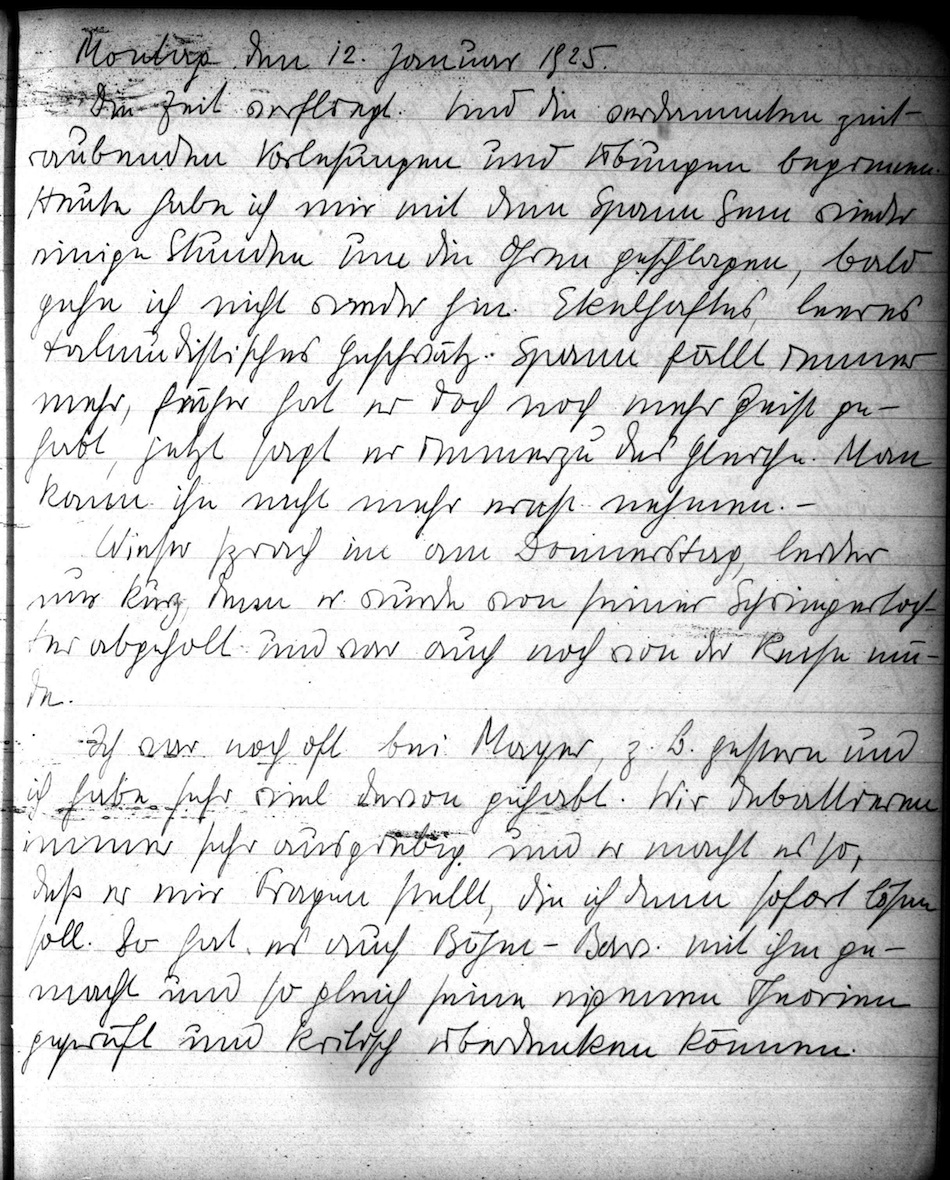 Montag den 12. Januar 1925.
Die Zeit verfliegt. Und die verdammten zeit-
raubenden Vorlesungen und Übungen beginnen.
Heute habe ich mir mit dem Spann Sem wieder
einige Stunden um die Ohren geschlagen, bald
gehe ich nicht wieder hin. Ekelhaftes, leeres
talmudistisches Geschwätz. Spann fällt immer
mehr, früher hat er doch noch mehr Geist ge-
habt, jetzt sagt er immerzu das Gleiche. Man
kann ihn nicht mehr ernst nehmen. –
Wieser sprach ich am Donnerstag, leider
nur kurz, denn er wurde von seiner Schwiegertoch-
ter abgeholt und war auch noch von der Reise mü-
de.
Ich war noch oft bei Mayer, z. B. gestern und
ich habe sehr viel davon gehabt. Wir debattieren
immer sehr ausgiebig und er macht es so,
daß er mir Fragen stellt, die ich dann sofort lösen
soll. So hat es auch Böhm-Baw. mit ihm ge-
macht und so gleich seine eigenen Theorien
geprüft und kritisch überdenken können.